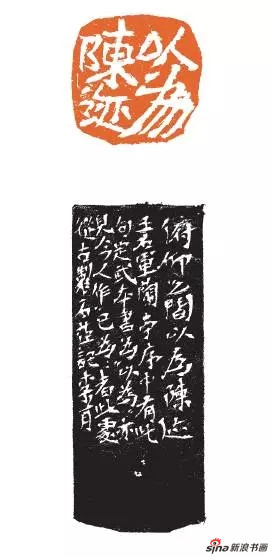 以為
陳迹
俯仰之間以為陳迹
王右軍蘭亭序中有此
句定武本書為以為亦
見今人作已為者此處
從古製石並記
sina新浪书画